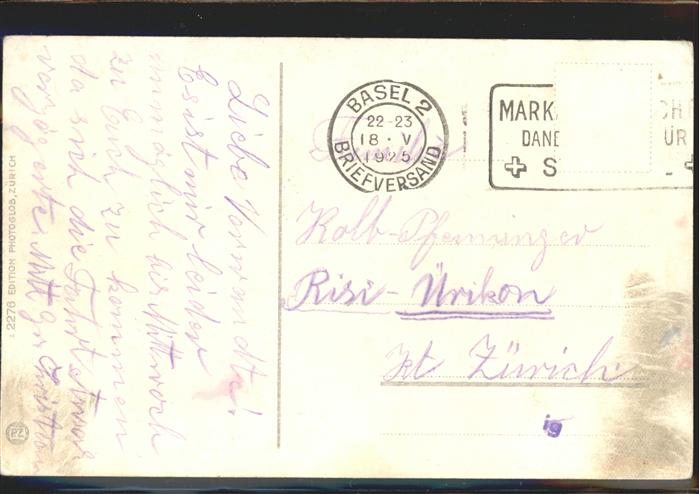 Liebe Verwandte!
Es ist mir leider
unmöglich bis Mittwoch
zu Euch zu kommen
da sich die Fahrt
2276 EDITION PHOTOGLOB, ZÜRICH
PZ
BASEL 2
22-23
18·V
1925
BRIEFVERSAND
MARK CH
DANE ÜR
+ S +
Familie
Kolb-Pfenninger
Risi-Ürikon
Kt Zürich
ig